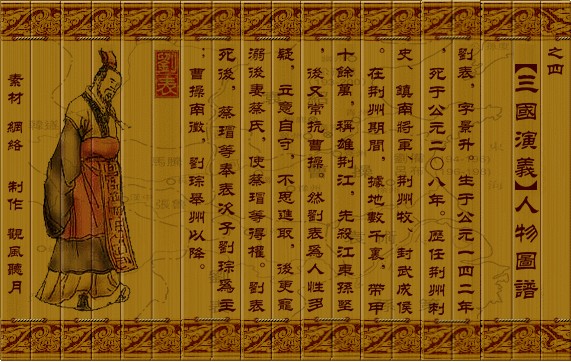 之四
【三國演義】人物圖譜
劉表，字景升。生于公元一四二年
，死于公元二〇八年。歷任荆州刺
史、鎮南將軍、荆州牧、封武成侯
。在荆州期間，據地數千裏，帶甲
十餘萬，稱雄荆江，先殺江東孫堅
，後又常抗曹操。然劉表爲人性多
疑，立意自守，不思進取，後更寵
溺後妻蔡氏，使蔡瑁等得權。劉表
死後，蔡瑁等奉表次子劉琮爲主
；曹操南徵，劉琮舉州以降。
劉表
素材 網絡 制作 觀風聽月